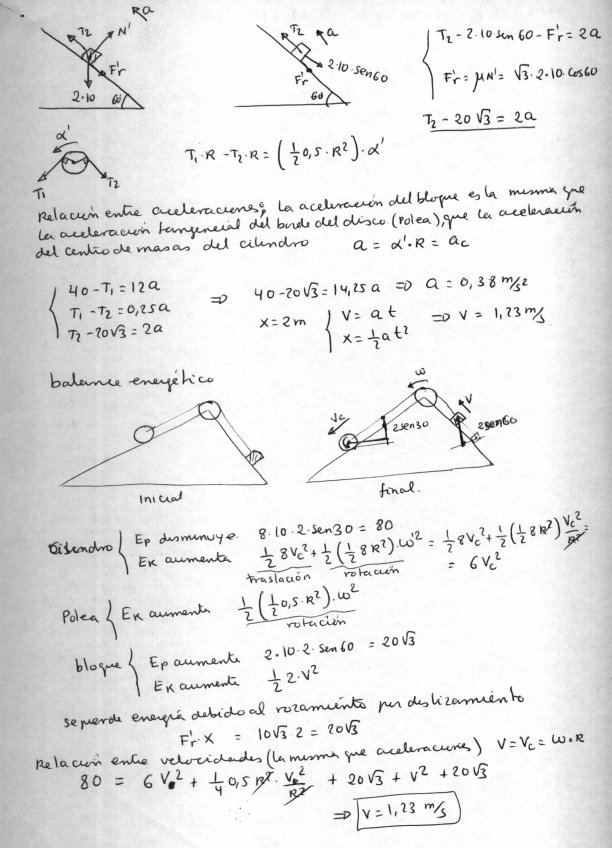 a
T₂ N' F'r 2·10 60
T₂ a 2·10·sen60 F'r 60
T₂ - 2·10·sen 60 - F'r = 2a
F'r = μN' = √3·2·10·cos60
T₂ - 20√3 = 2a
α' T₁ T₂
T₁·R - T₂·R = (1/2 0,5·R²)·α'
Relación entre aceleraciones: la aceleración del bloque es la misma que
la aceleración tangencial del borde del disco (Polea), que la aceleración
del centro de masas del cilindro a = α'·R = ac
40 - T₁ = 12a
T₁ - T₂ = 0,25a
T₂ - 20√3 = 2a
⇒ 40 - 20√3 = 14,25a ⇒ a = 0,38 m/s²
x = 2m { v = at
x = 1/2 at² ⇒ v = 1,23 m/s
balance energético
inicial
Vc 2sen30 ω V 2sen60
final.
Cilindro { Ep disminuye 8·10·2·sen30 = 80
Ek aumenta 1/2 8Vc² + 1/2 (1/2 8R²)·ω'² = 1/2 8Vc² + 1/2 (1/2 8R²) Vc²/R² =
traslación rotación = 6Vc²
Polea { Ek aumenta 1/2 (1/2 0,5·R²)·ω²
rotación
bloque { Ep aumenta 2·10·2·sen60 = 20√3
Ek aumenta 1/2 2·V²
se pierde energía debido al rozamiento por deslizamiento
F'r·x = 10√3·2 = 20√3
Relación entre velocidades (la misma que aceleraciones) V = Vc = ω·R
80 = 6V² + 1/4 0,5 R²·V²/R² + 20√3 + V² + 20√3
⇒ V = 1,23 m/s